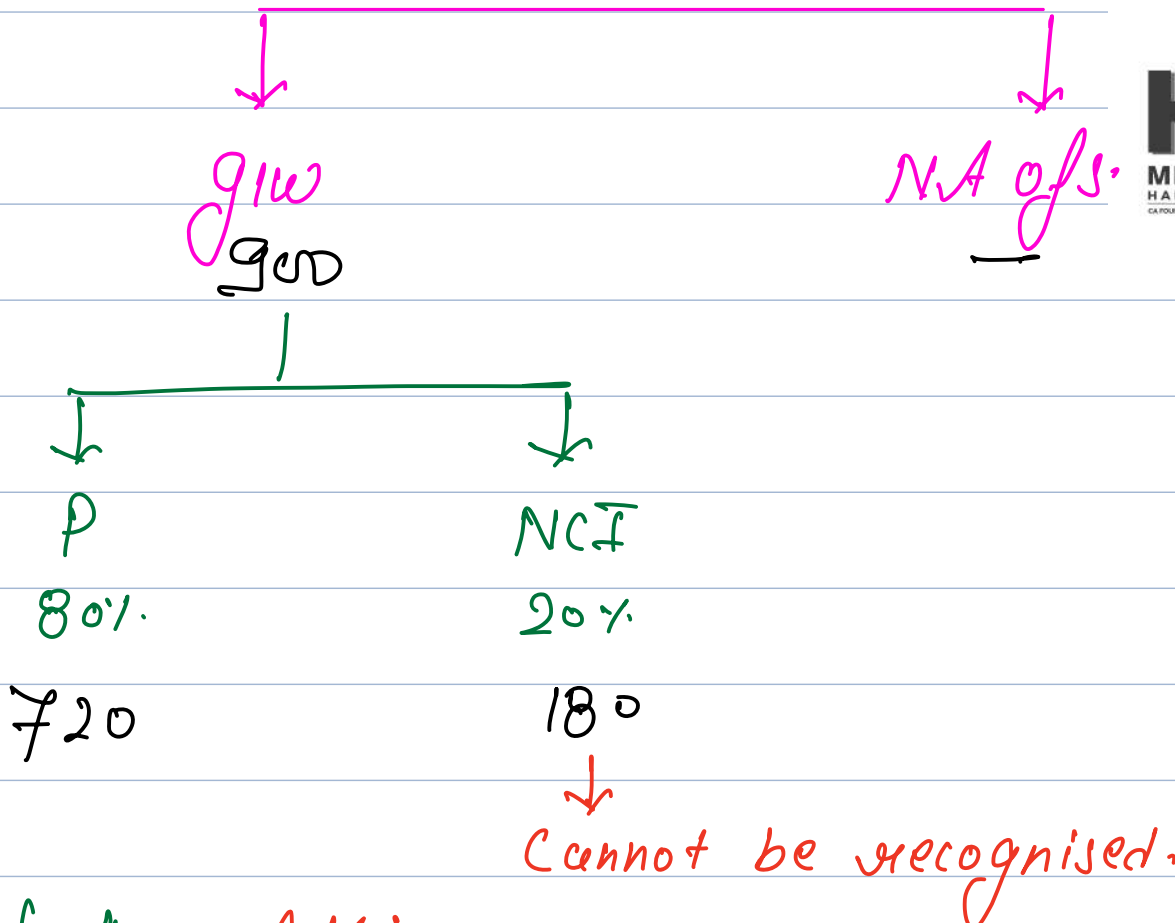 g/w NA of S.
900 —
P NCI
80%. 20%
720 180
Cannot be recognised.